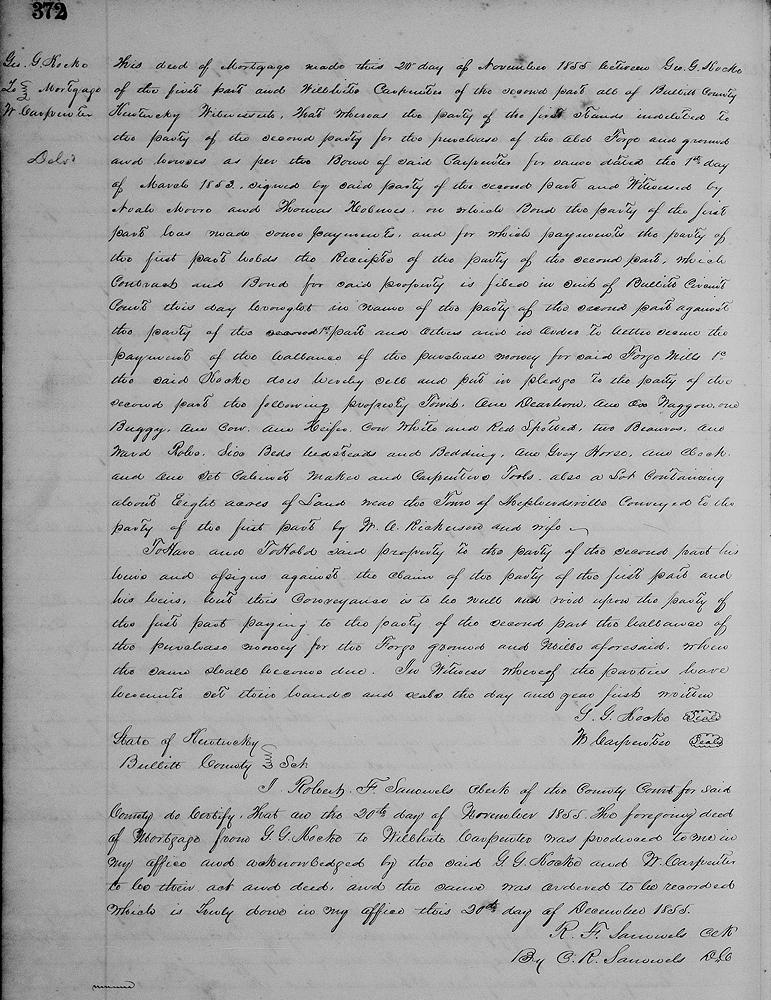 372
Geo. G. Hocke
To } Mortgage
W Carpenter
Deld
This deed of Mortgage made this 20th day of November 1855 between Geo. G. Hocke
of the first part and Wilhite Carpenter of the second part all of Bullitt County
Kentucky Witnesseth, That whereas the party of the first Stands indebted to
the party of the second party for the purchase of the Old Forge and ground
and houses as per the Bond of said Carpenter for same dated the 1st day
of March 1853. signed by said party of the second part and Witnessed by
Noah Moore and Thomas on which Bond the party of the first
part has made some payments, and for which payments the party of
the first part holds the Receipts of the party of the second part, which
Contract and Bond for said property is filed in suit of Bullitt Circuit
Court this day brought in name of the party of the second part against
the party of the second 1st part and others and in order to better secure the
payment of the ballance of the purchase money for said Forge Mills &c
the said Hocke does hereby sell and put in pledge to the party of the
second part the following property Towit, One Dearborn, One Ox Waggon, one
Buggy, One Cow. One Heifer, Cow White and Red Spotted, two Beauros, One
Ward Robe, Six Beds bedsteads and Bedding, One Grey Horse, One Clock.
and One Set Cabinet Maker and Carpenters Tools. also a Lot Containing
about Eight acres of Land near the Town of Shepherdsville Conveyed to the
party of the first part by W. C. Rickerson and wife
To Have and To Hold said property to the party of the second part his
heirs and assigns against the claim of the party of the first part and
his heirs, but this Conveyance is to be null and void upon the party of
the first part paying to the party of the second part the ballance of
the purchase money for the Forge ground and Mills aforesaid, when
the same shall become due. In Witness whereof the parties have
hereunto set their hands and seals the day and year first written
G. G. Hocke Seal
W. Carpenter Seal
State of Kentucky
Bullitt County } Sct
I. Robert F. Samuels Clerk of the County Court for said
County do Certify, That on the 20th day of November 1855. The foregoing deed
of Mortgage from G. G. Hocke to Wilhite Carpenter was produced to me in
my office and acknowledged by the said G. G. Hocke and W. Carpenter
to be their act and deed, and the same was ordered to be recorded
which is Truly done in my office this 20th day of December 1855.
R. F. Samuels Clk
By C. R. Samuels DC